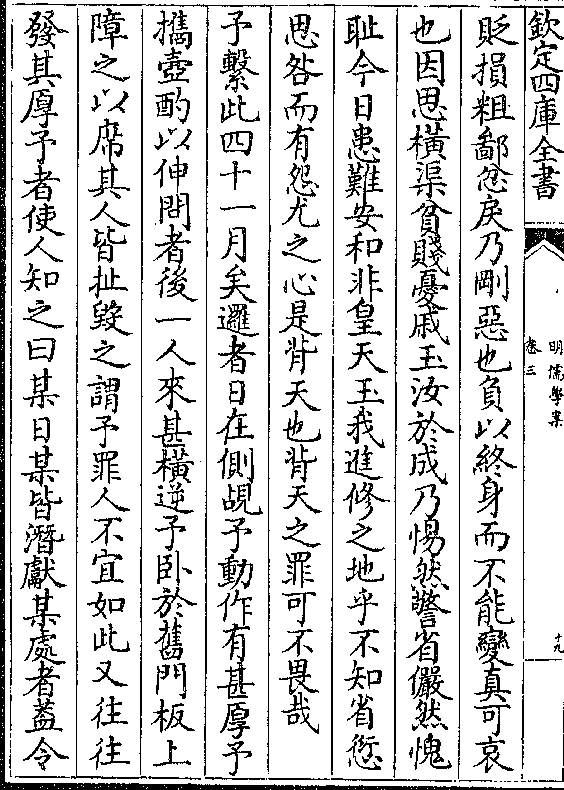 欽定四庫全書
明儒學案
卷三
十九
貶損粗鄙忿戾乃剛惡也負以終身而不能變真可哀
也因思橫渠貧賤憂戚玉汝於成乃惕然警省儼然愧
耻今日患難安和非皇天玉我進修之地乎不知省愆
思咎而有怨尤之心是背天也背天之罪可不畏哉
予繫此四十一月矣邏者日在側覘予動作有甚厚予
攜壺酌以伸問者後一人來甚橫逆予卧於舊門板上
障之以席其人皆扯毀之謂予罪人不宜如此又往往
發其厚予者使人知之曰某日某皆潛獻某處者葢令